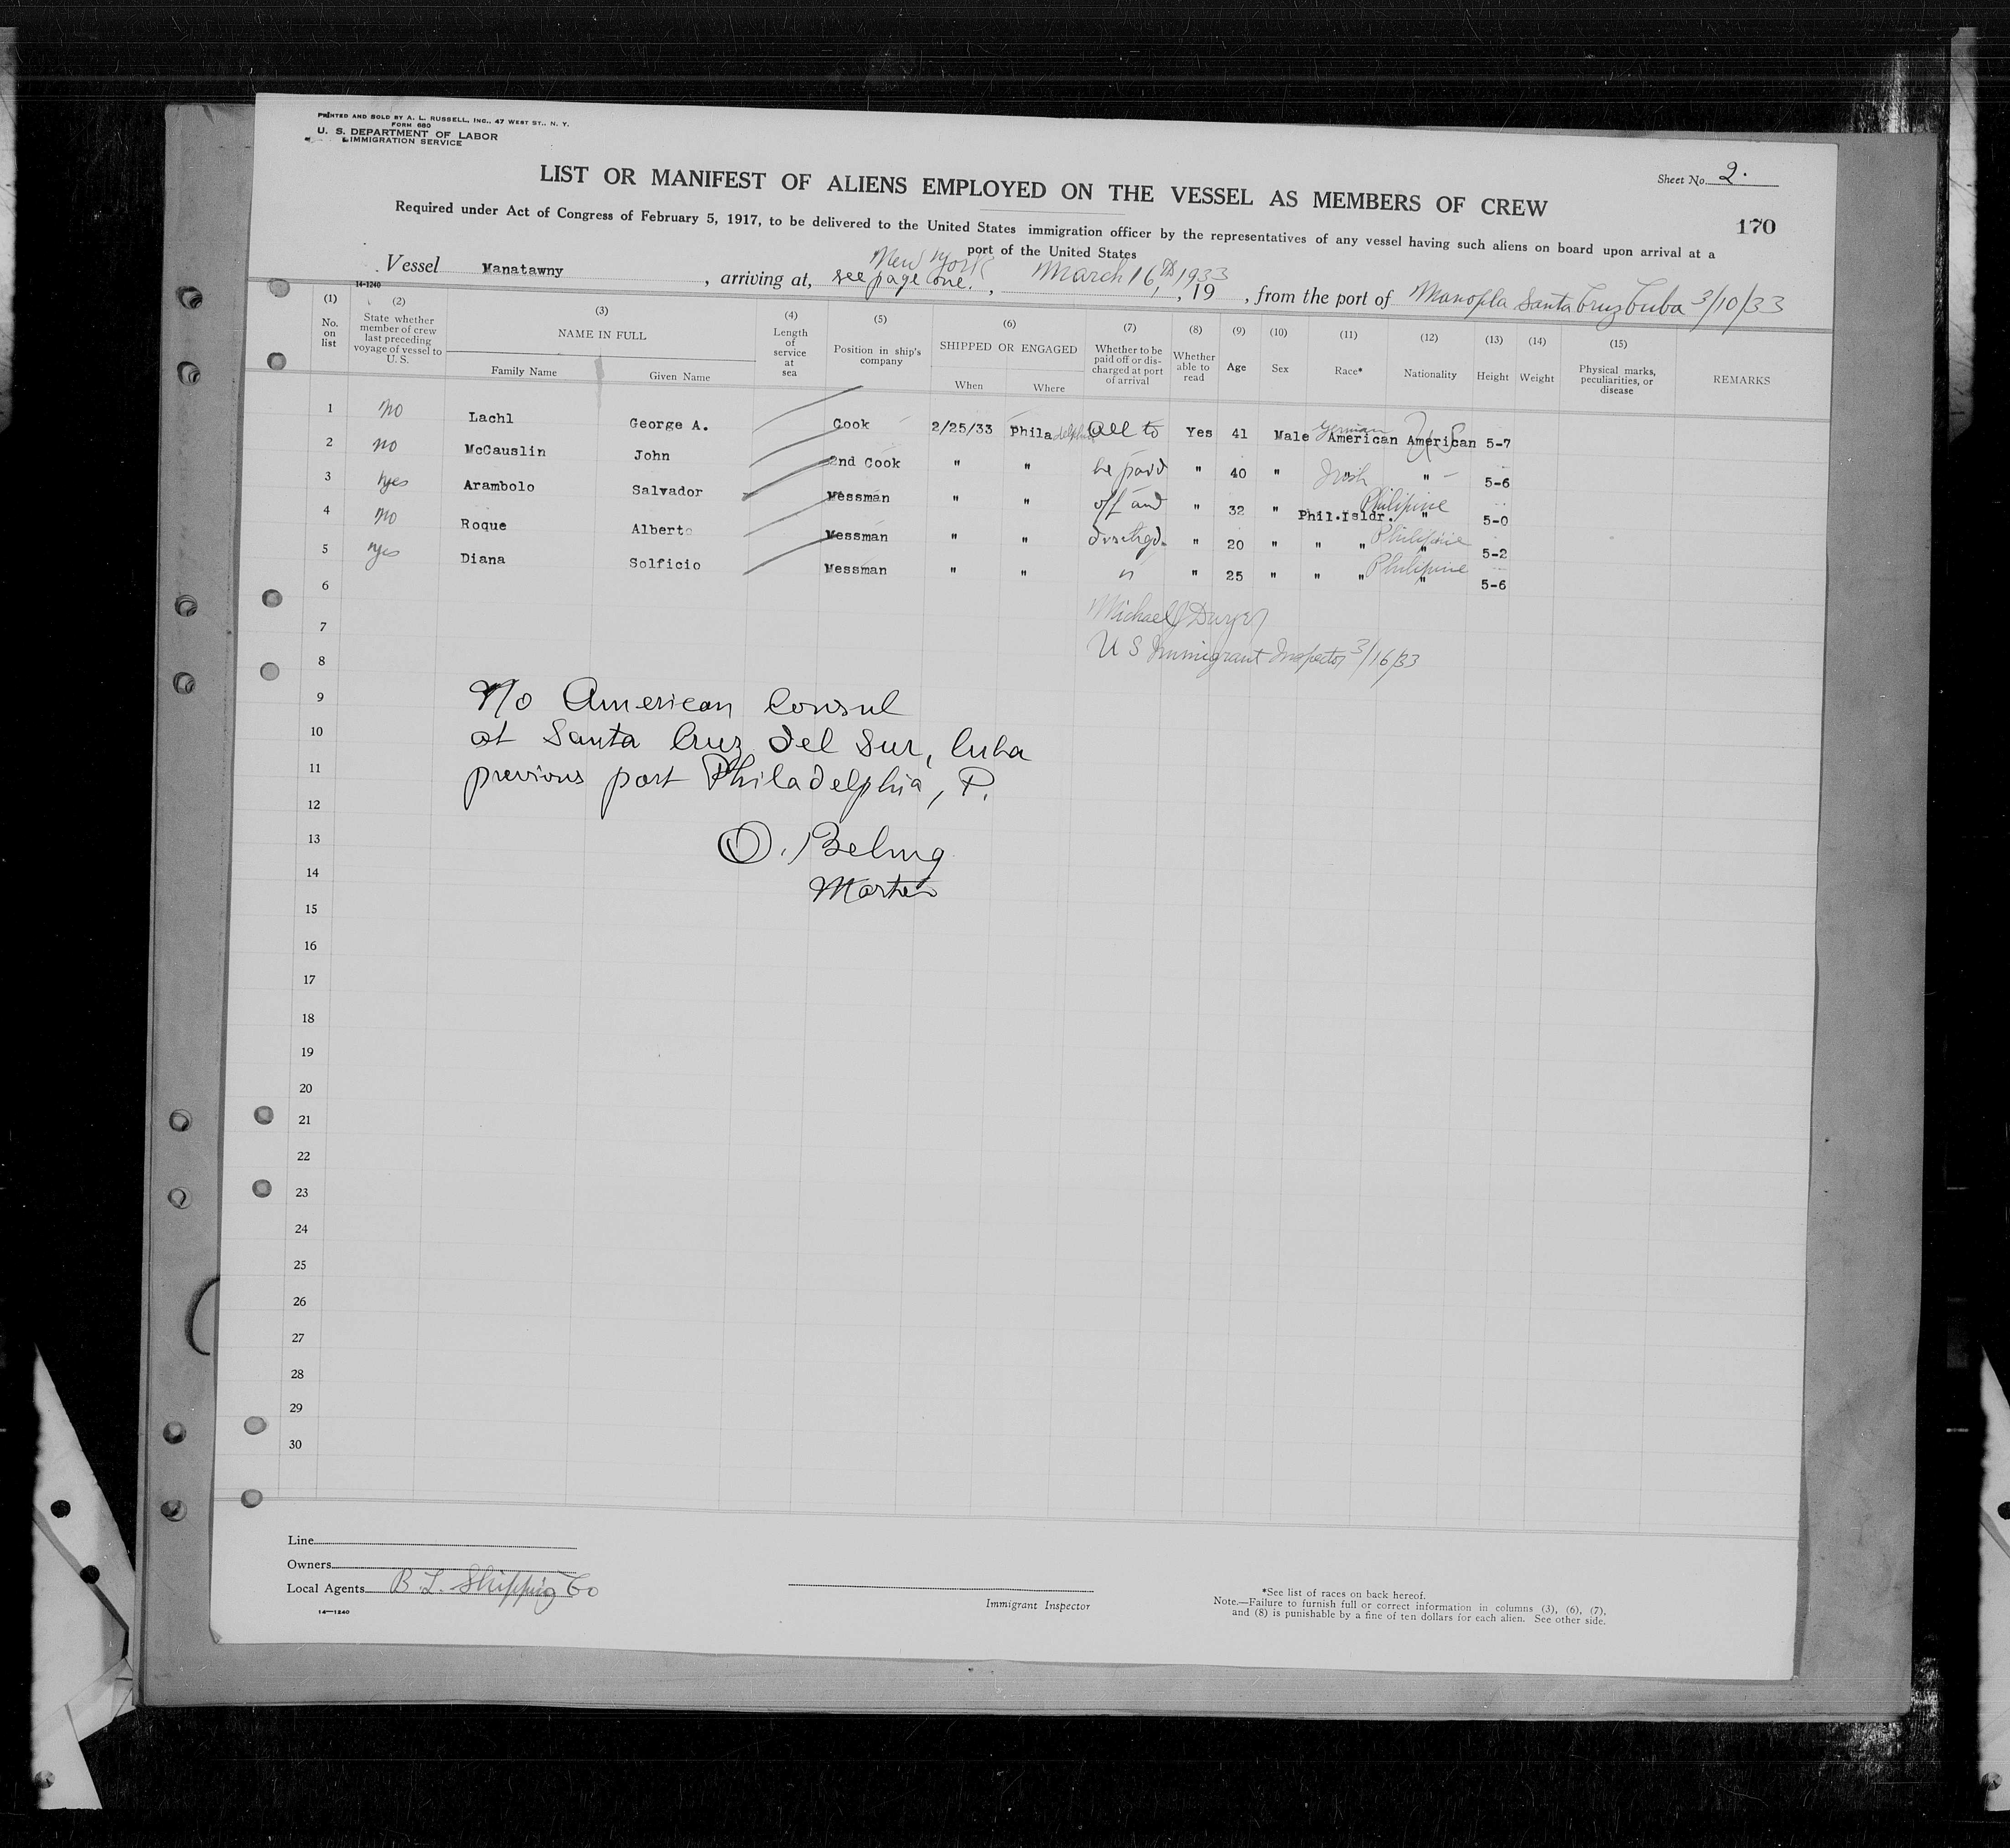 PRINTED AND SOLD BY A. L. RUSSELL, INC., 47 WEST ST., N. Y.
FORM 680
U. S. DEPARTMENT OF LABOR
IMMIGRATION SERVICE
Sheet No. 2.
LIST OR MANIFEST OF ALIENS EMPLOYED ON THE VESSEL AS MEMBERS OF CREW
170
Required under Act of Congress of February 5, 1917, to be delivered to the United States immigration officer by the representatives of any vessel having such aliens on board upon arrival at a
port of the United States
New York
Vessel Manatawny, arriving at, see page one., March 16th, 1933, 19, from the port of Manopla Santa Cruz Cuba 3/10/33
14-1240
(1) No. on list
(2) State whether member of crew last preceding voyage of vessel to U. S.
(3) NAME IN FULL
Family Name Given Name
(4) Length of service at sea
(5) Position in ship's company
(6) SHIPPED OR ENGAGED
When Where
(7) Whether to be paid off or discharged at port of arrival
(8) Whether able to read
(9) Age
(10) Sex
(11) Race*
(12) Nationality
(13) Height
(14) Weight
(15) Physical marks, peculiarities, or disease
REMARKS
1 no Lachl George A. Cook 2/25/33 Philadelphia All to Yes 41 Male German American American U S 5-7
2 no McCauslin John 2nd Cook " " be paid " 40 " Irish " " 5-6
3 yes Arambolo Salvador Messman " " off and " 32 " Phil.Isldr. Philipine " 5-0
4 no Roque Alberto Messman " " dischgd. " 20 " " " Philipine " 5-2
5 yes Diana Solficio Messman " " " " 25 " " " Philipine " 5-6
6
Michael J Dwyer
7
U S Immigrant Inspector 3/16/33
8
9 No American Consul
10 at Santa Cruz del Sur, Cuba
11 previous port Philadelphia, P.
12
13 O.
14 Master
15
16
17
18
19
20
21
22
23
24
25
26
27
28
29
30
Line
Owners
Local Agents B. L. Shipping Co
14—1240
Immigrant Inspector
*See list of races on back hereof.
Note.—Failure to furnish full or correct information in columns (3), (6), (7),
and (8) is punishable by a fine of ten dollars for each alien. See other side.